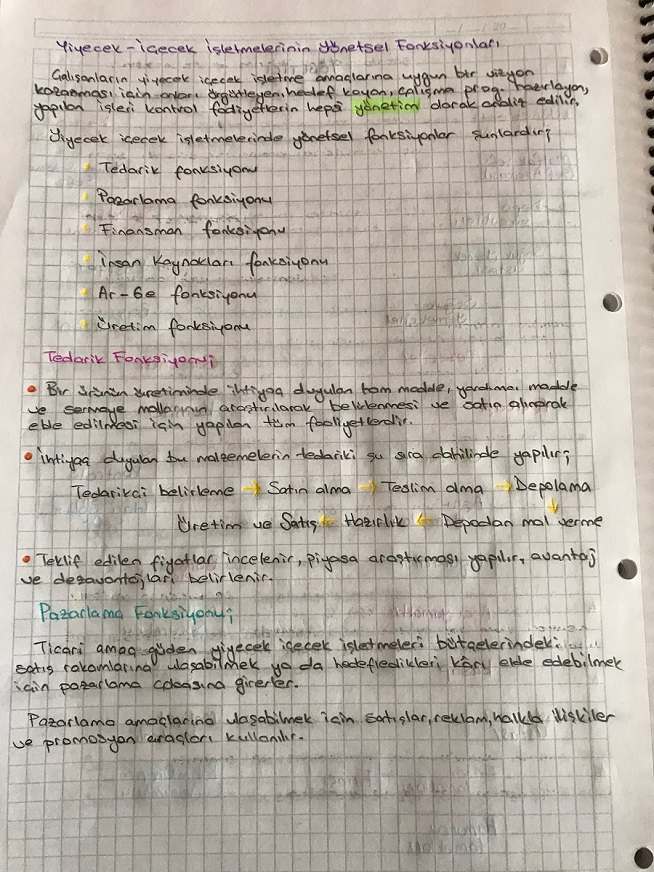 Yiyecek-içecek işletmelerinin Yönetsel Fonksiyonları
Çalışanların yiyecek içecek işletme amaçlarına uygun bir vizyon
kazanması için onları örgütleyen, hedef koyan, çalışma prog. hazırlayan,
yapılan işleri kontrol faaliyetlerin hepsi yönetim olarak analiz edilir.
Yiyecek içecek işletmelerinde yönetsel fonksiyonlar şunlardır;
Tedarik fonksiyonu
Pazarlama fonksiyonu
Finansman fonksiyonu
İnsan kaynakları fonksiyonu
Ar-Ge fonksiyonu
Üretim fonksiyonu
Tedarik Fonksiyonu;
• Bir ürünün üretiminde ihtiyaç duyulan ham madde, yardımcı madde
ve sermaye mallarının araştırılarak beklenmesi ve satın alınarak
elde edilmesi için yapılan tüm faaliyetlerdir.
• İhtiyaç duyulan bu malzemelerin tedariki şu sıra dahilinde yapılır;
Tedarikci belirleme → Satın alma → Teslim alma → Depolama
↓
Üretim ve Satış ← Hazırlık ← Depodan mal verme
• Teklif edilen fiyatlar incelenir, piyasa araştırması yapılır, avantaj
ve dezavantajları belirlenir.
Pazarlama Fonksiyonu;
Ticari amaç güden yiyecek içecek işletmeleri bütçelerindeki
satış rakamlarına ulaşabilmek ya da hedefledikleri karı elde edebilmek
için pazarlama çabasına girerler.
Pazarlama amaçlarına ulaşabilmek için satışlar, reklam, halkla ilişkiler
ve promosyon araçları kullanılır.